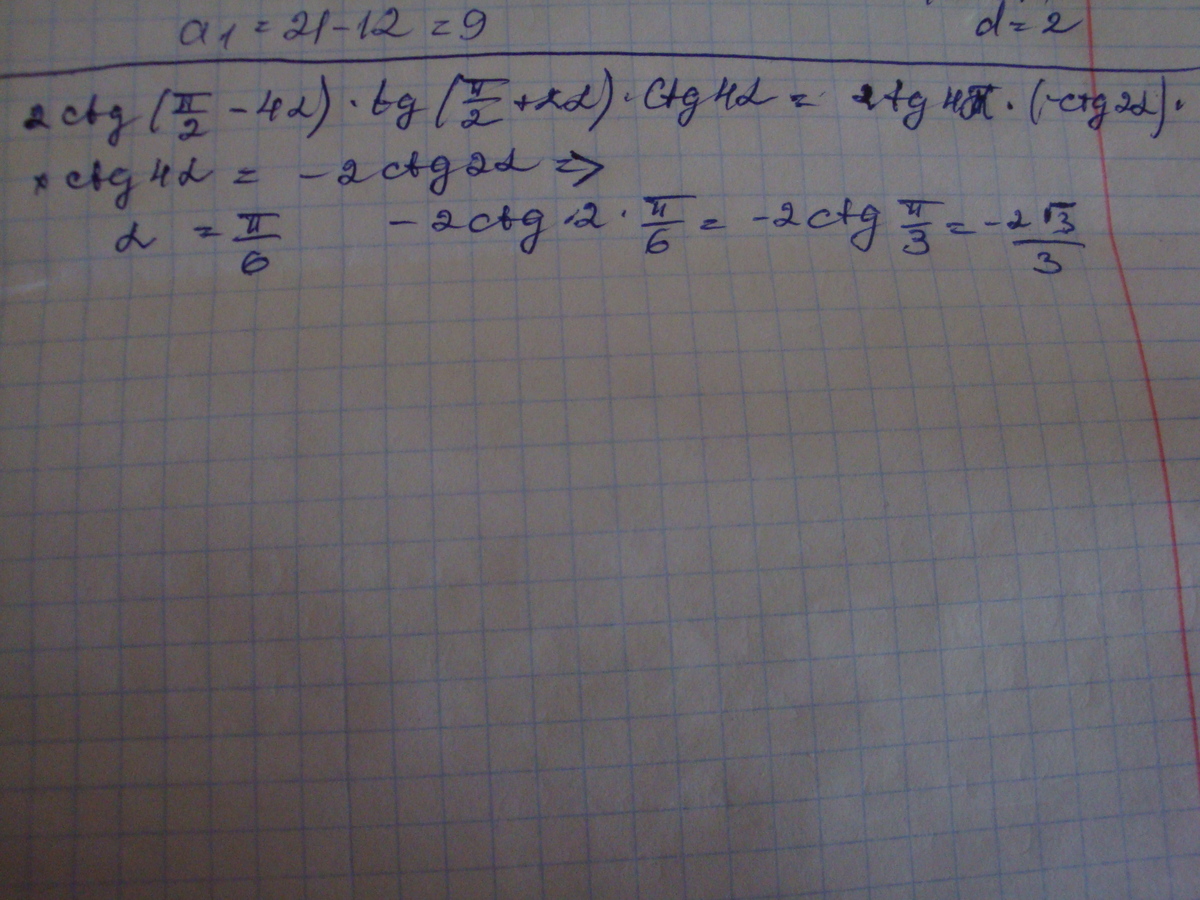 a₁ = 21 - 12 = 9 d = 2
2 ctg (π/2 - 4α) · tg (π/2 + 2α) · ctg 4α = 2tg 4π · (-ctg 2α) ·
× ctg 4α = -2 ctg 2α =>
α = π/6 -2 ctg · 2 · π/6 = -2 ctg π/3 = -2√3/3